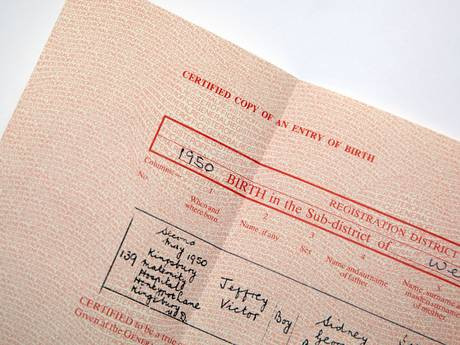 CERTIFIED COPY OF AN ENTRY OF BIRTH
REGISTRATION DISTRICT
1950 BIRTH in the Sub-district of We
Columns:— 1 2 3 4 5
No. When and where born Name, if any Sex Name and surname of father Name, surname and maiden surname of mother
139 Second May 1950 Kingsbury Maternity Hospital Honeypot Lane Kingsbury U.D. Jeffrey Victor Boy Sidney
CERTIFIED to be a true c
Given at the GENER